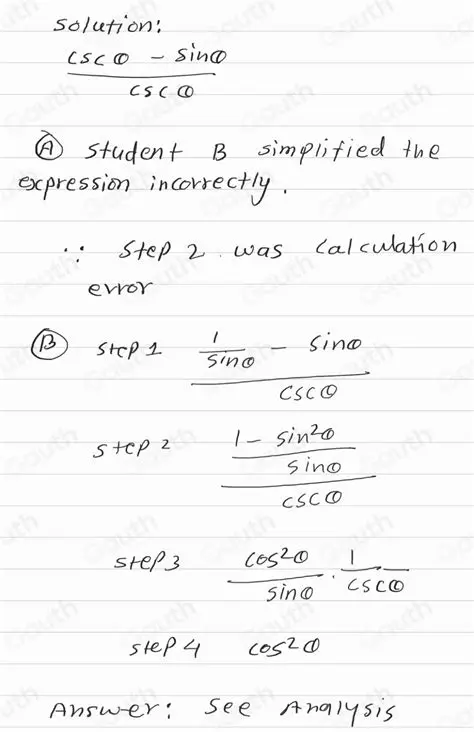 solution:
cscθ - sinθ
cscθ
Ⓐ student B simplified the
expression incorrectly.
∵ Step 2 was calculation
error
Ⓑ step 1 1/sinθ - sinθ
cscθ
step 2 1 - sin²θ
sinθ
cscθ
step 3 cos²θ/sinθ · 1/cscθ
step 4 cos²θ
Answer: See Analysis